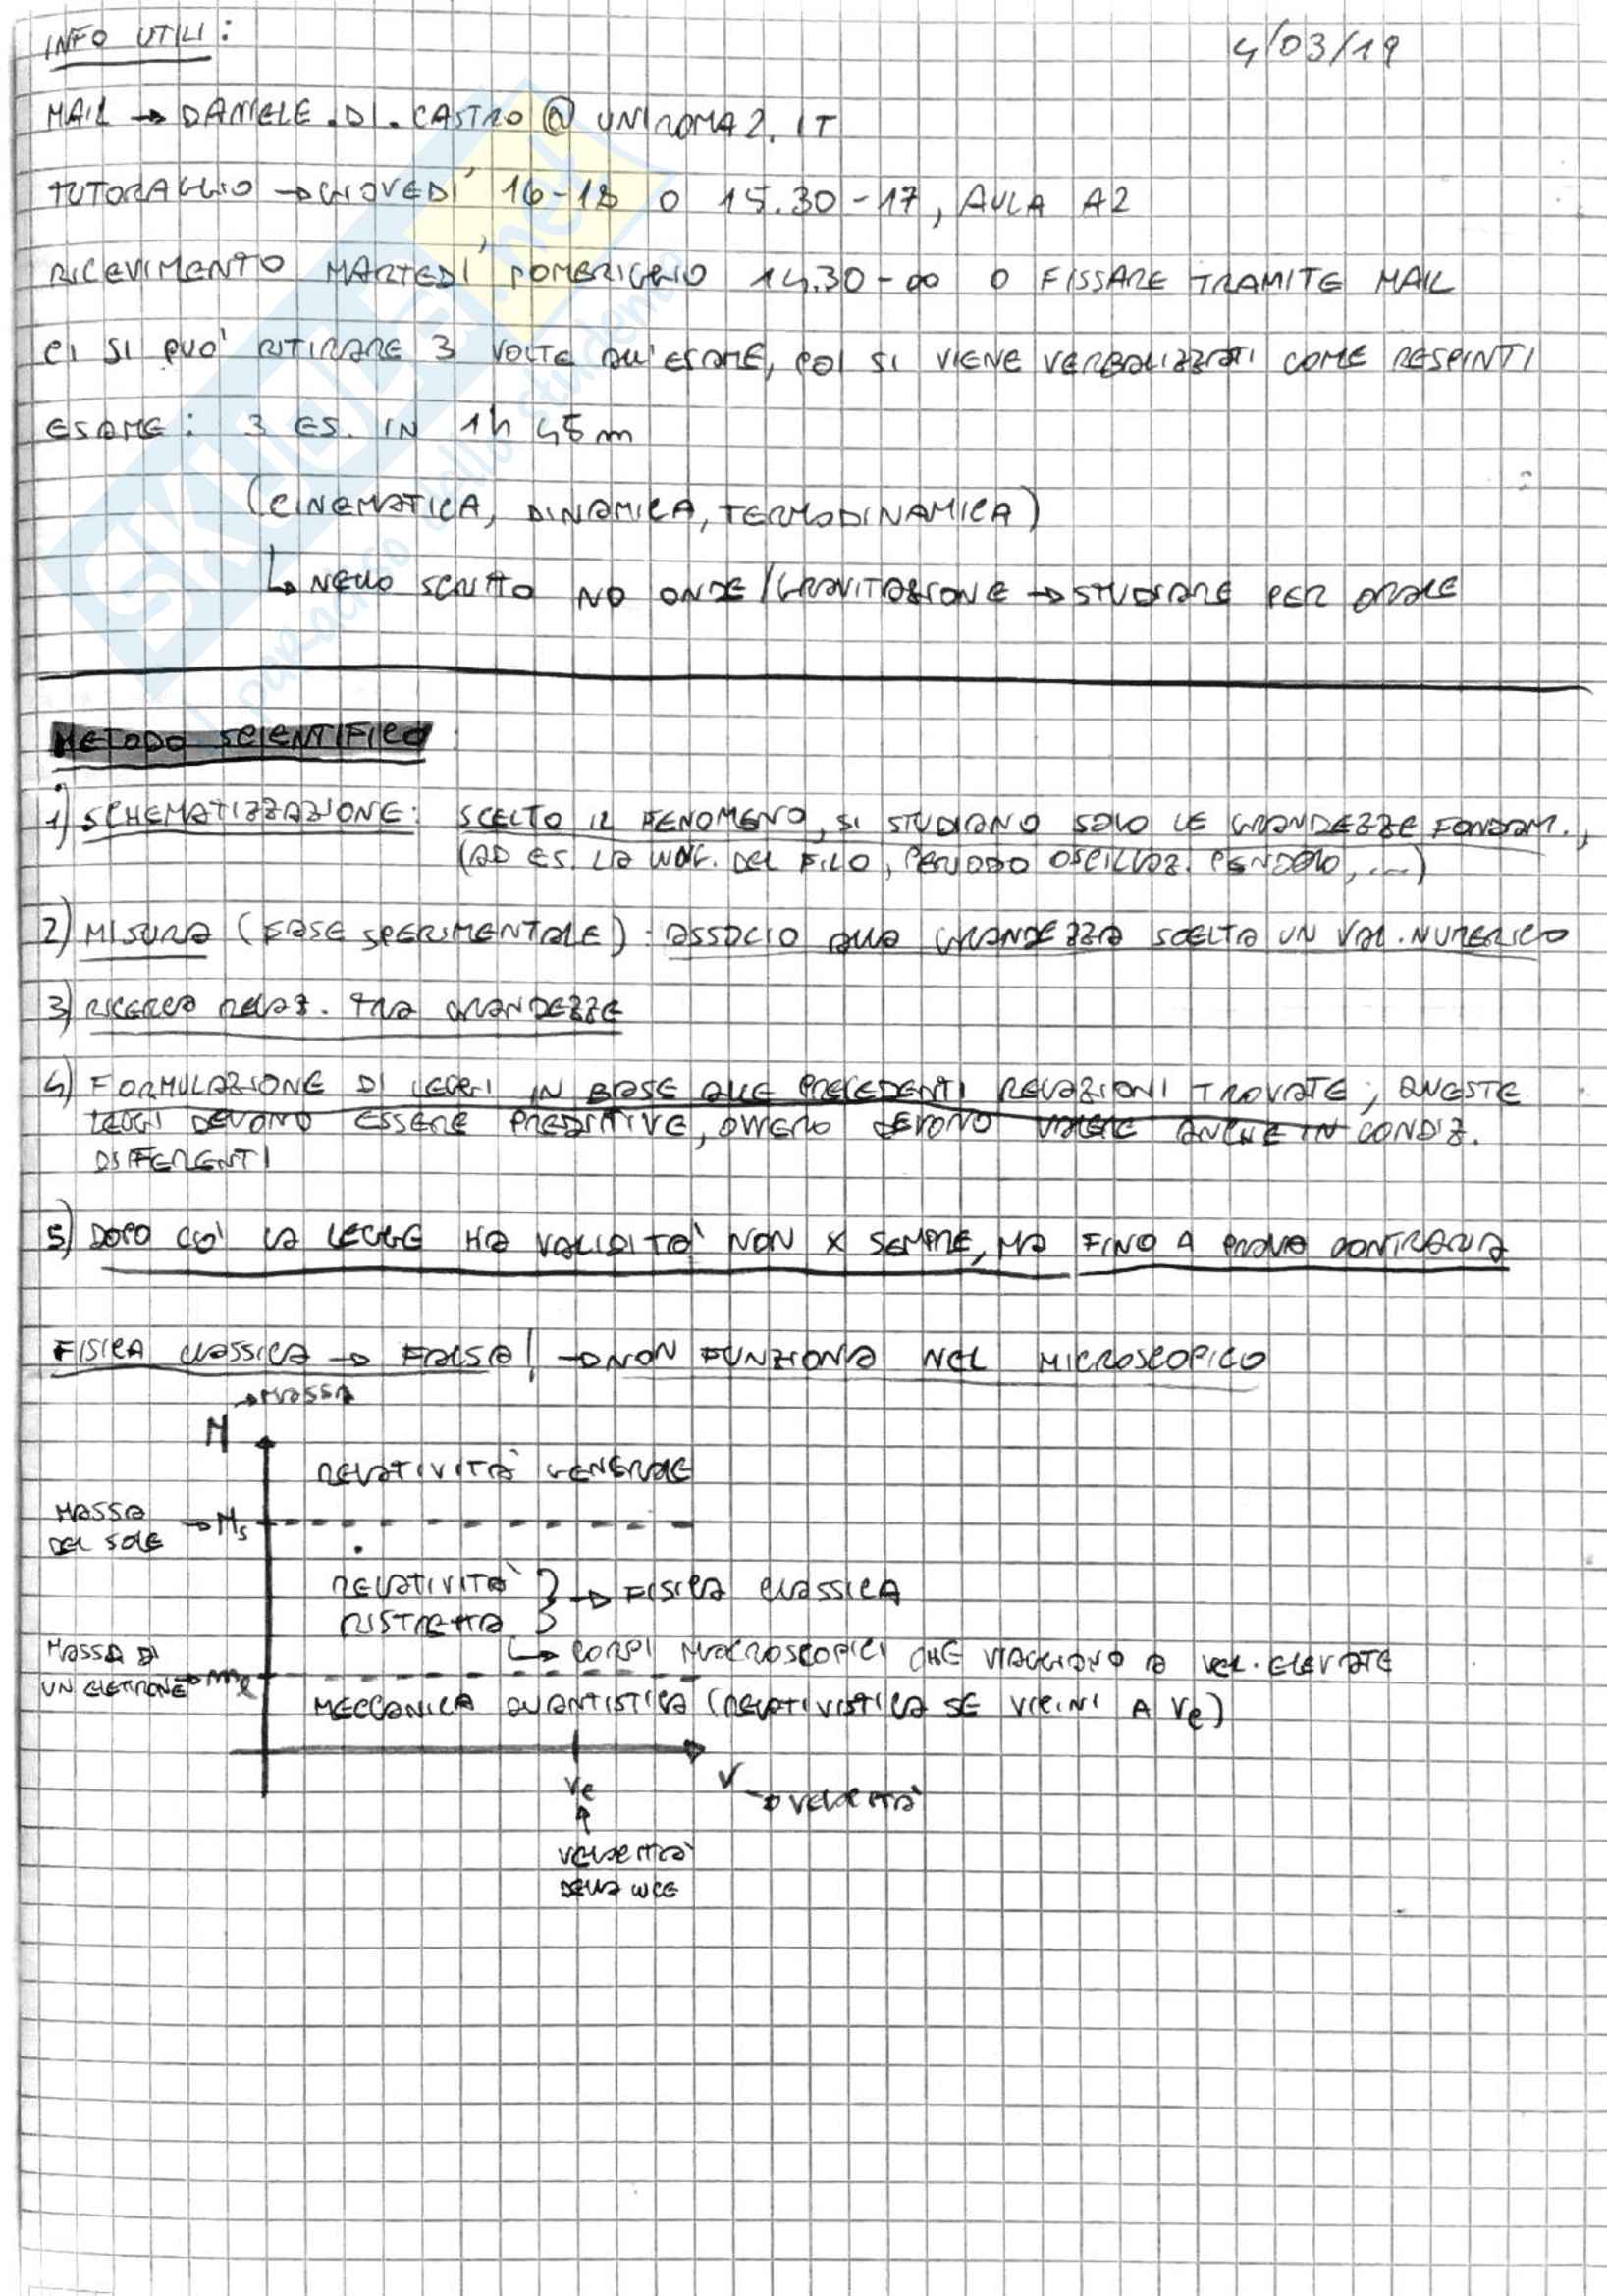 INFO UTILI:
4/03/19
MAIL → DANIELE.DI.CASTRO@UNIROMA2.IT
TUTORAGGIO → GIOVEDÌ 16-18 O 15.30-17, AULA A2
RICEVIMENTO MARTEDÌ POMERIGGIO 14.30-∞ O FISSARE TRAMITE MAIL
CI SI PUO' RITIRARE 3 VOLTE ALL'ESAME, POI SI VIENE VERBALIZZATI COME RESPINTI
ESAME: 3 ES. IN 1h 45m
(CINEMATICA, DINAMICA, TERMODINAMICA)
↳ NELLO SCRITTO NO ONDE/GRAVITAZIONE → STUDIARE PER ORALE
METODO SCIENTIFICO:
1) SCHEMATIZZAZIONE: SCELTO IL FENOMENO, SI STUDIANO SOLO LE GRANDEZZE FONDAM.,
(AD ES. LA LUNG. DEL FILO, PERIODO OSCILLAZ. PENDOLO, ...)
2) MISURA (FASE SPERIMENTALE): ASSOCIO ALLA GRANDEZZA SCELTA UN VAL. NUMERICO
3) RICERCA RELAZ. TRA GRANDEZZE
4) FORMULAZIONE DI LEGGI IN BASE ALLE PRECEDENTI RELAZIONI TROVATE; QUESTE
LEGGI DEVONO ESSERE PREDITTIVE, OVVERO DEVONO VALERE ANCHE IN CONDIZ.
DIFFERENTI
5) DOPO CIO' LA LEGGE HA VALIDITA' NON X SEMPRE, MA FINO A PROVA CONTRARIA
FISICA CLASSICA → FALSA! → NON FUNZIONA NEL MICROSCOPICO
→ MASSA
M
RELATIVITÀ GENERALE
MASSA
DEL SOLE → Ms
RELATIVITÀ } → FISICA CLASSICA
RISTRETTA }
↳ CORPI MACROSCOPICI CHE VIAGGIANO A VEL. ELEVATE
MASSA DI
UN ELETTRONE → me
MECCANICA QUANTISTICA (RELATIVISTICA SE VICINI A Ve)
Ve
V → VELOCITÀ
↑
VELOCITA'
DELLA LUCE
SKUOLA.net
paradiso dello studente